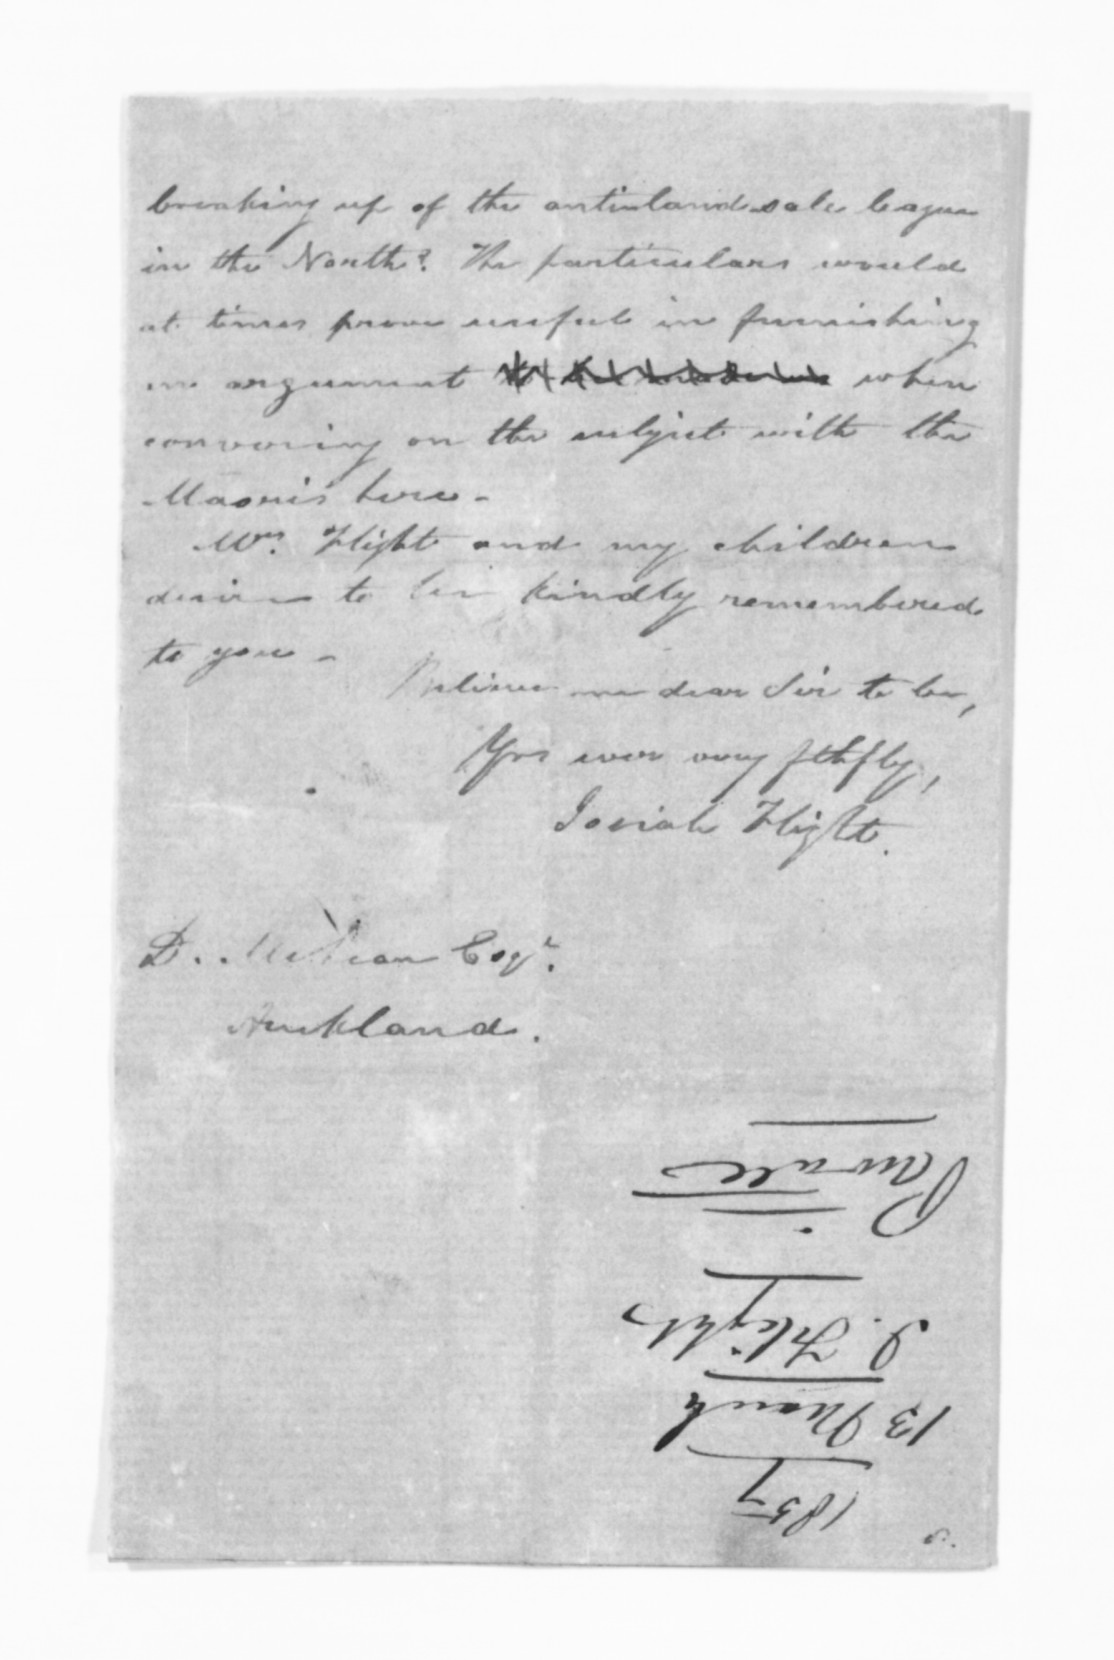 breaking up of the anti-land-sale league
in the North? The particulars would
at times prove useful in furnishing
an argument when
conversing on the subject with the
Maoris here -
Mrs. Flight and my children
desire to be kindly remembered
to you -
Believe me dear Sir to be,
Yrs ever very fthfly,
Josiah Flight.
D. McLean Esqr.
Auckland.
1857
13 March
J. Flight
Private